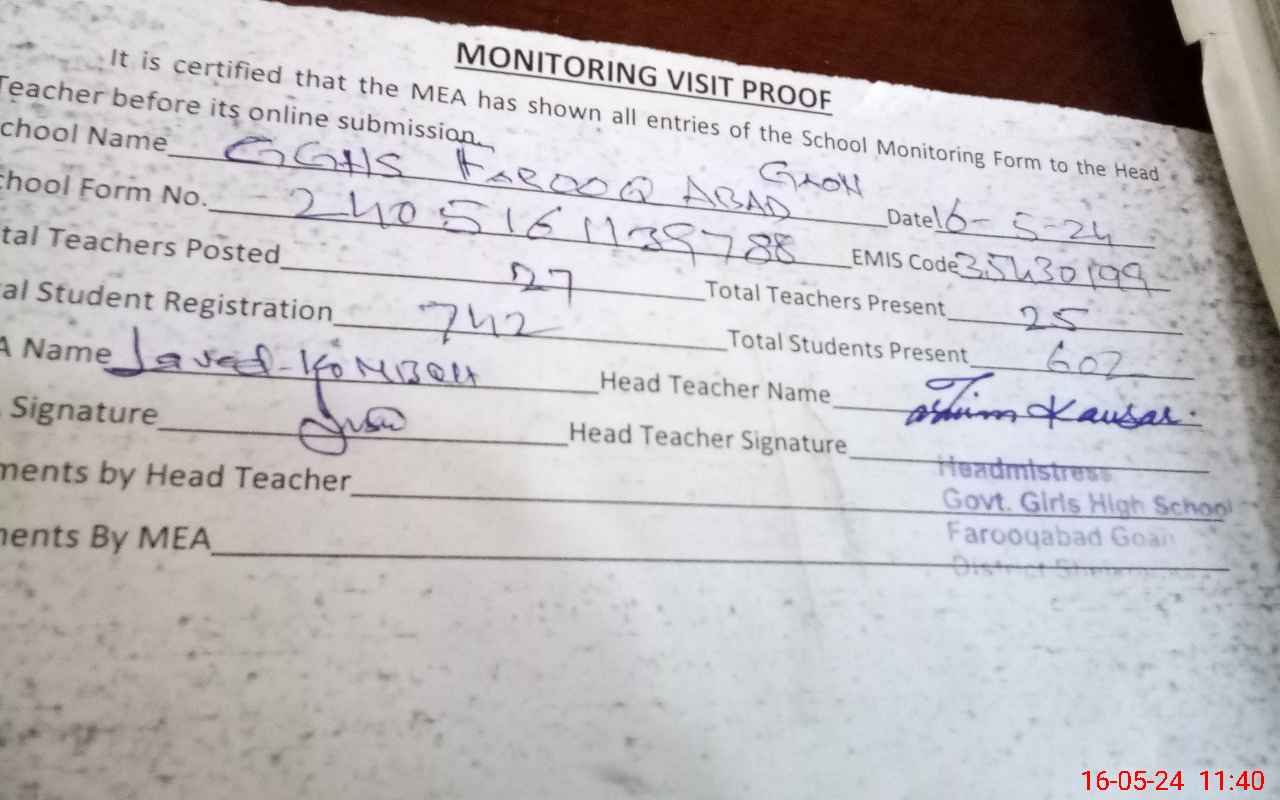 MONITORING VISIT PROOF
It is certified that the MEA has shown all entries of the School Monitoring Form to the Head
Teacher before its online submission.
chool Name GGHS FAROOQ ABAD GAON Date 16-5-24
chool Form No. 2405161139788 EMIS Code 35430199
tal Teachers Posted 27 Total Teachers Present 25
al Student Registration 742 Total Students Present 602
A Name Javed KOMBOH Head Teacher Name Kausar
Signature Head Teacher Signature
ments by Head Teacher Headmistress
Govt. Girls High School
ents By MEA Farooqabad
District
16-05-24 11:40